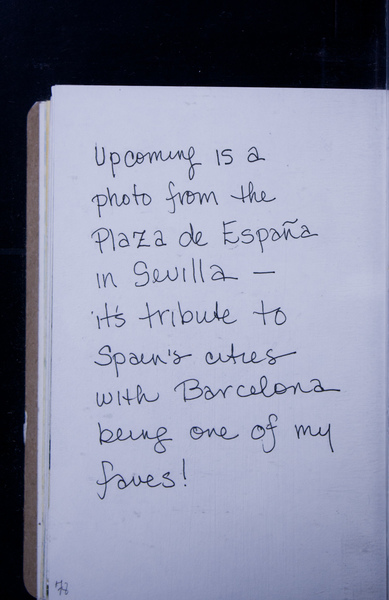 Upcoming is a
photo from the
Plaza de España
in Sevilla —
it's tribute to
Spain's cities
with Barcelona
being one of my
faves!
78